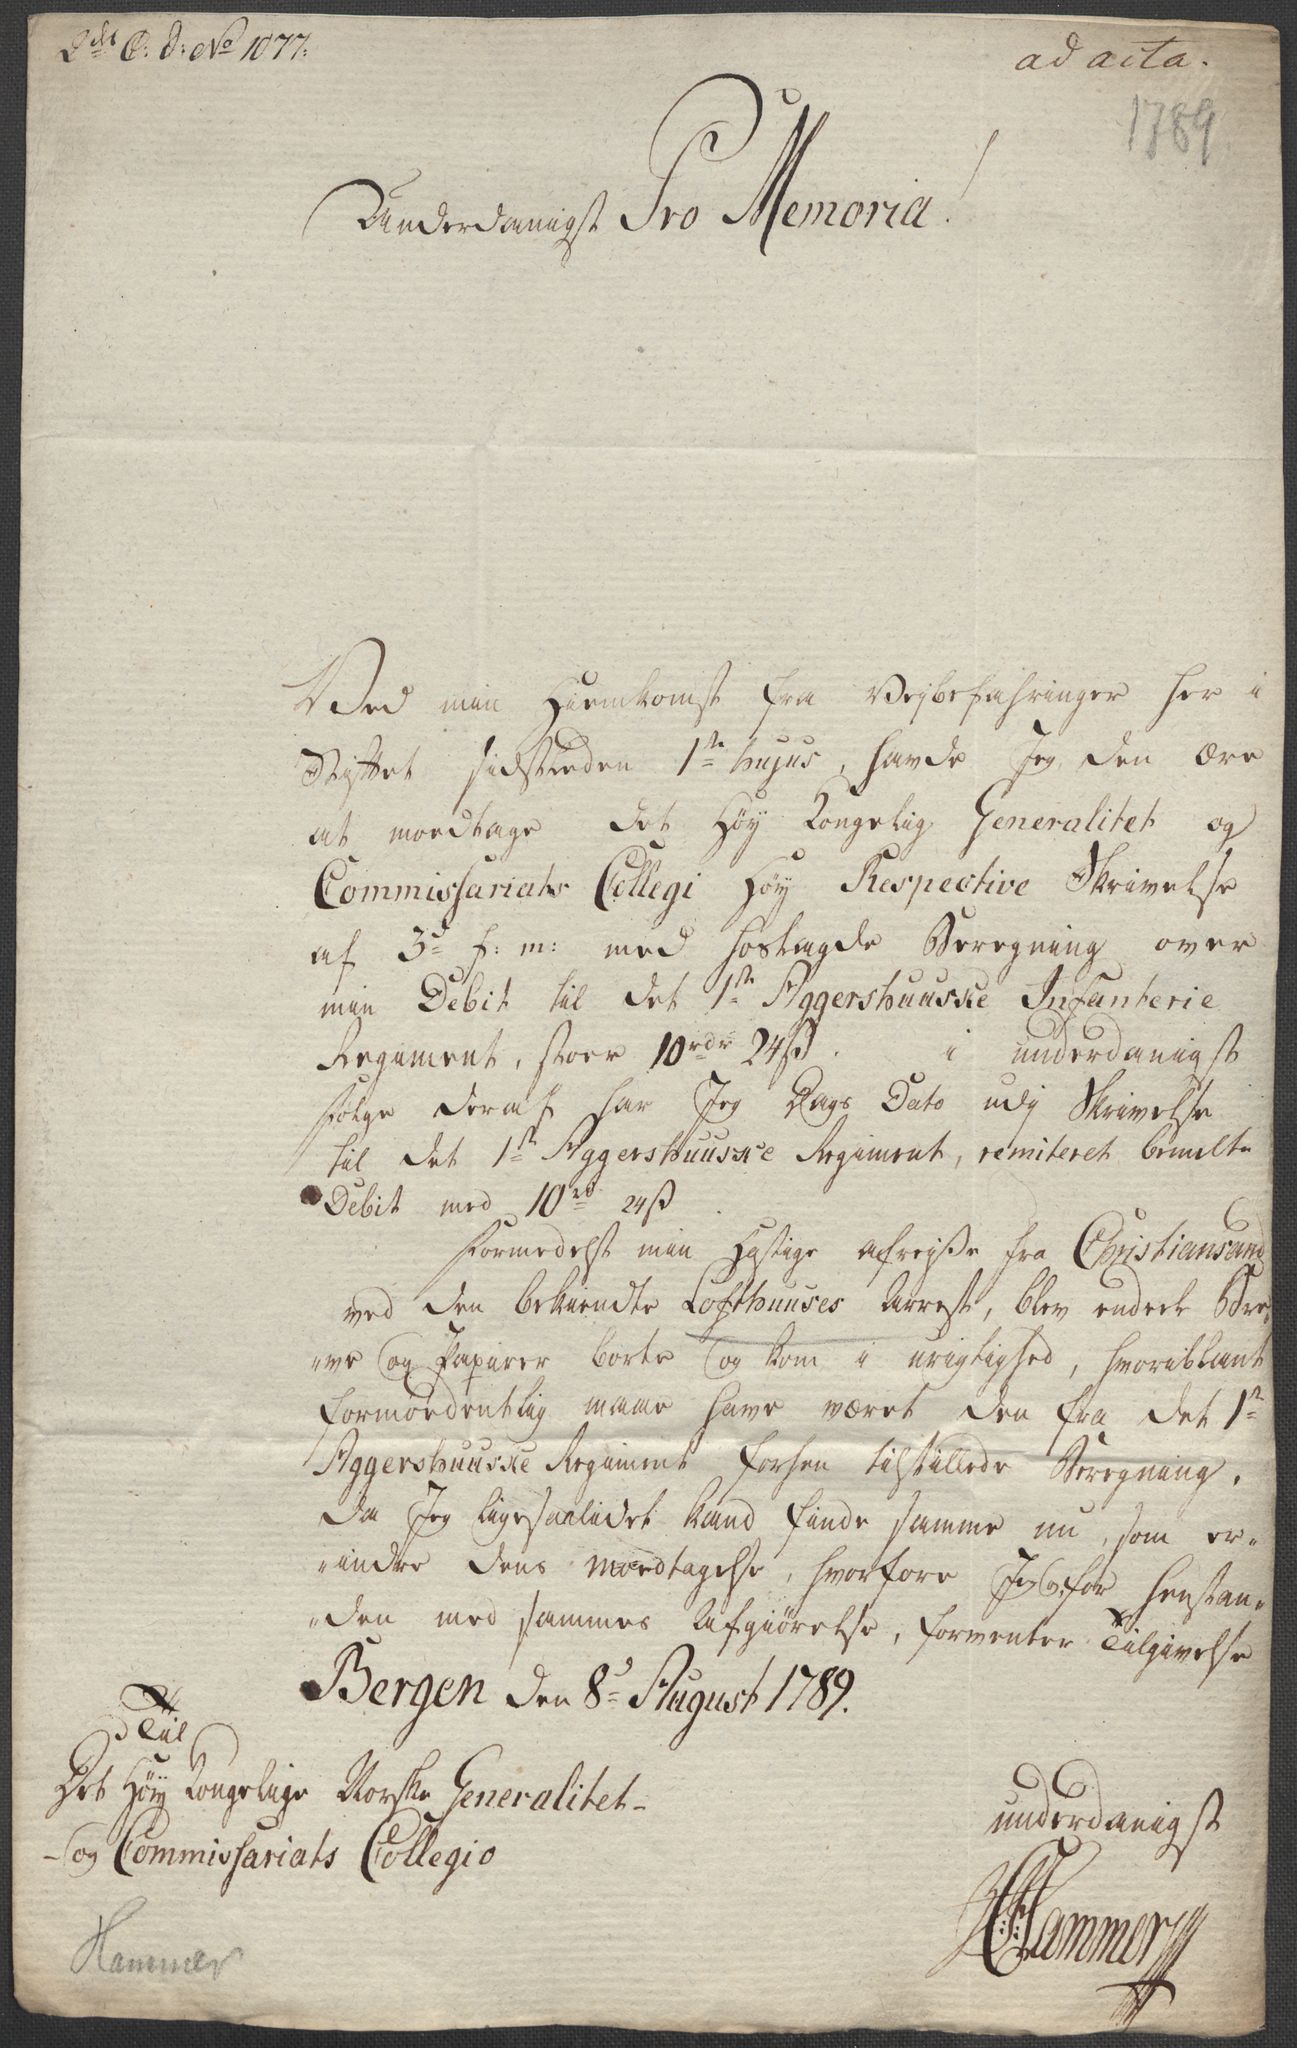 2de C: D: No 1077:
ad acta.
1789
Underdanigst Pro Memoria!
Ved min Hiemkomst fra Vejbefahringer her i
Stiftet sidstleeden 1te hujus, havde Jeg den ære
at moedtage det Høy Kongelig Generalitet og
Commissariats Collegi Høy Respective Skrivelse
af 3de f: m: med hoslagde Beregning over
min Debit til det 1te Aggershuuske Infanterie
Regiment, stoer 10rdr 24s. i underdanigst
følge deraf har Jeg Dags Dato udj Skrivelse
til det 1te Aggershuuske Regiment, remiteret bemelte
Debit med 10rd 24s.
Formedelst min Hastige afrejse fra Christiansand
ved den bekiendte Lofthuuses Arrest, blev endeel Bre„
„ve og Papirer borte og kom i urigtighed, hvoriblant
formoedentlig maae have været den fra det 1te
Aggershuuske Regiment forhen tilstillede Beregning,
da Jeg ligesaalidet kand finde samme nu, som er„
„indre dens moedtagelse, hvorfore Jeg for henstan„
„den med sammes Afgiørelse, forventer Tilgivelse
Bergen den 8de August 1789.
Til
Det Høy Kongelige Norske Generalitet-
-og Commissariats Collegio
underdanigst
Hammer
Hammer